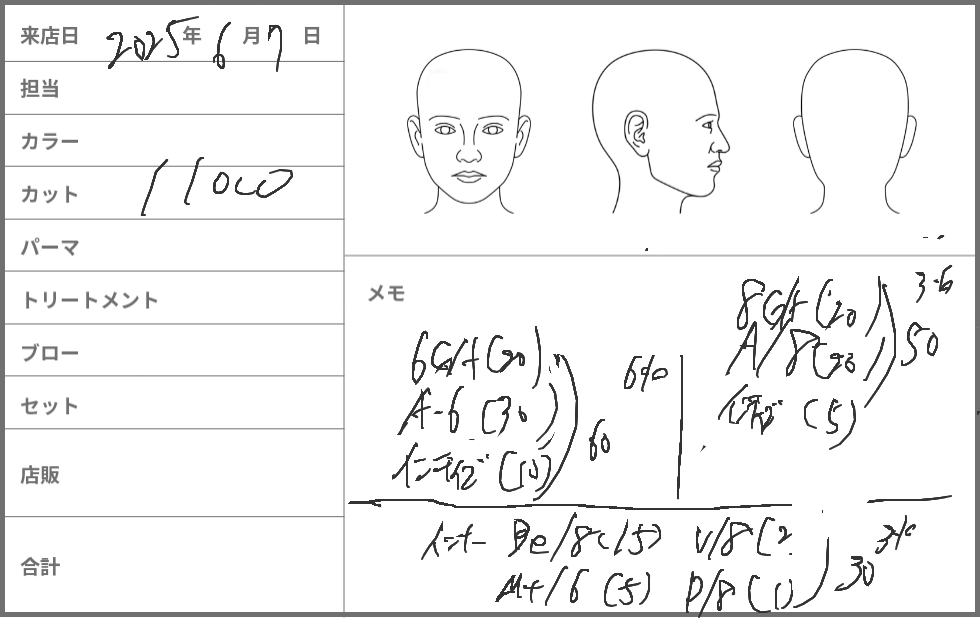 来店日 2025年 6月 7日
担当
カラー
カット 11000
パーマ
トリートメント
ブロー
セット
店販
合計
メモ
6G/+(20)
A-6(30)
インディゴ(10)
60
6%
8G/+(20)
A/8(20)
インディゴ(5)
50
3.6
インナー Be/8(15) V/8(2
M+/6(5) P/8(1)
30
3%